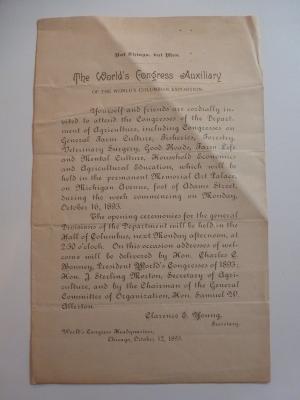 Not Things, but Men.
The World's Congress Auxiliary
OF THE WORLD'S COLUMBIAN EXPOSITION.
Yourself and friends are cordially in-
vited to attend the Congresses of the Depart-
ment of Agriculture, including Congresses on
General Farm Culture, Fisheries, Forestry,
Veterinary Surgery, Good Roads, Farm Life
and Mental Culture, Household Economics
and Agricultural Education, which will be
held in the permanent Memorial Art Palace,
on Michigan Avenue, foot of Adams Street,
during the week commencing on Monday,
October 16, 1893.
The opening ceremonies for the general
Divisions of the Department will be held in the
Hall of Columbus, next Monday afternoon, at
2:30 o'clock. On this occasion addresses of wel-
come will be delivered by Hon. Charles C.
Bonney, President World's Congresses of 1893,
Hon. J. Sterling Morton, Secretary of Agri-
culture, and by the Chairman of the General
Committee of Organization, Hon. Samuel W.
Allerton.
Clarence E. Young,
Secretary.
World's Congress Headquarters,
Chicago, October 12, 1893.